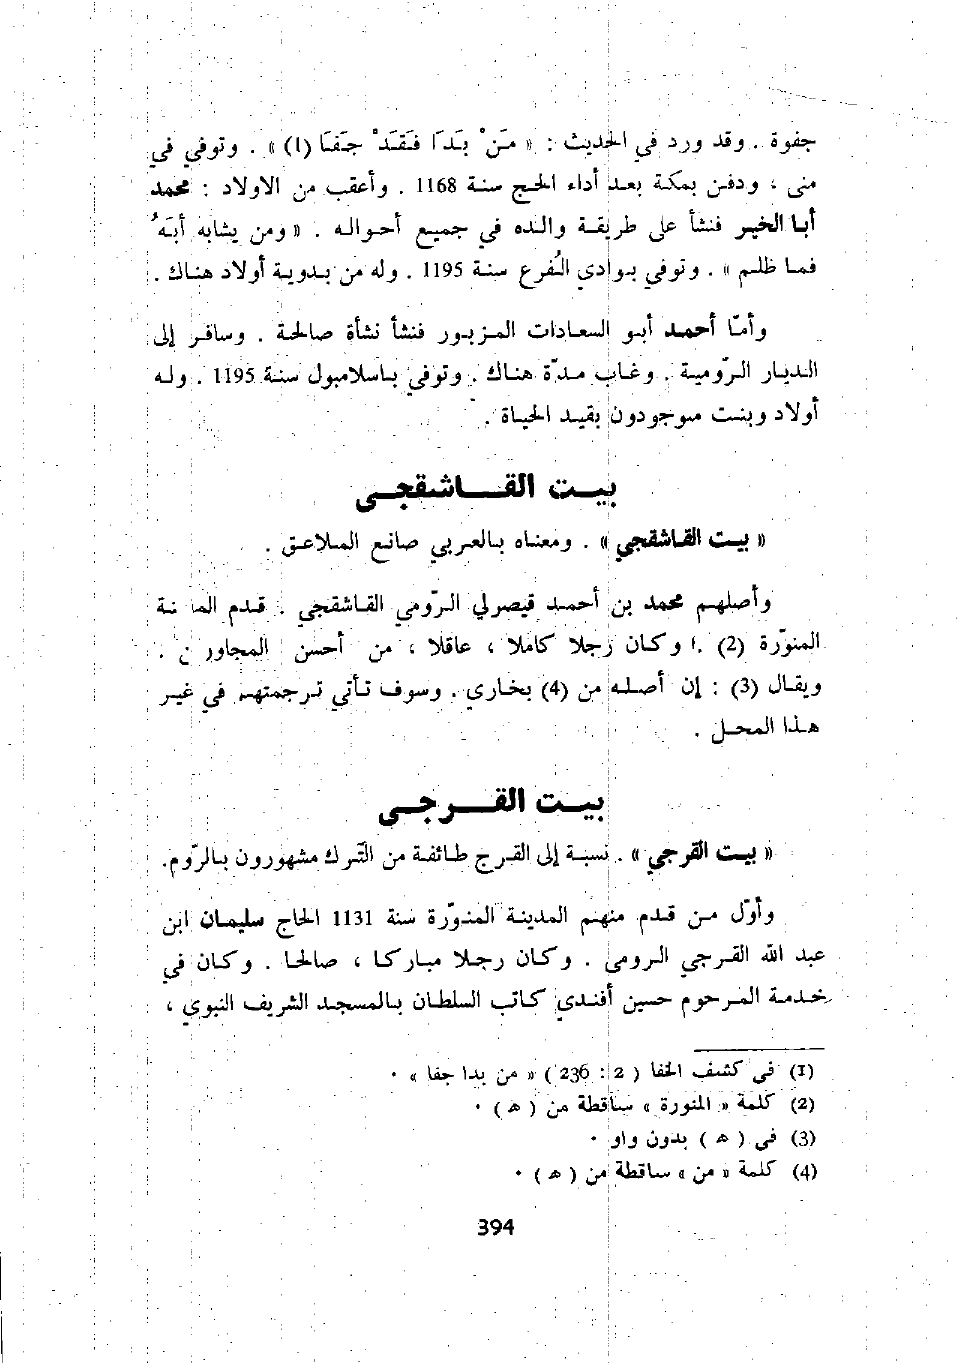 جفوة . وقد ورد في الحديث : « مَنْ بَدَا فَقَدْ جَفَا (1) » . وتوفي في
منى ، ودفن بمكة بعد أداء الحج سنة 1168 . وأعقب من الاولاد : محمد
أبا الخير فنشأ على طريقة والده في جميع أحواله . « ومن يشابه أبَهُ
فما ظلم » . وتوفي بوادي الفُرع سنة 1195 . وله من بدوية أولاد هناك .
وأمّا أحمد أبو السعادات المزبور فنشأ نشأة صالحة . وسافر إلى
الديار الرّومية . وغاب مدّة هناك . وتوفي باسلامبول سنة 1195 . وله
أولاد وبنت موجودون بقيد الحياة .
بيت القاشقجي
« بيت القاشقجي » . ومعناه بالعربي صانع الملاعق .
وأصلهم محمد بن أحمد قيصرلي الرّومي القاشقجي . قدم المدينة
المنوّرة (2) . وكان رجلا كاملا ، عاقلا ، من أحسن المجاورين .
ويقال (3) : إن أصله من (4) بخارى . وسوف تأتي ترجمتهم في غير
هذا المحل .
بيت القرجي
« بيت القرجي » . نسبة إلى القرج طائفة من التّرك مشهورون بالرّوم.
وأوّل من قدم منهم المدينة المنوّرة سنة 1131 الحاج سليمان ابن
عبد الله القرجي الرومي . وكان رجلا مباركا ، صالحا . وكان في
خدمة المرحوم حسين أفندي كاتب السلطان بالمسجد الشريف النبوي ،
(1) في كشف الخفا ( 2 : 236 ) « من بدا جفا » .
(2) كلمة « المنورة » ساقطة من ( ﻫ ) .
(3) في ( ﻫ ) بدون واو .
(4) كلمة « من » ساقطة من ( ﻫ ) .
394